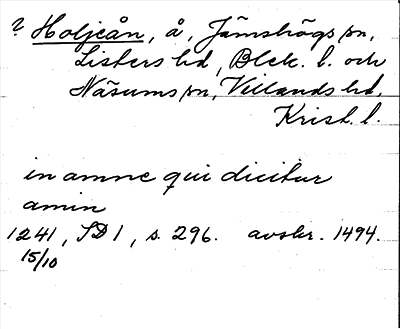 ? Holjeån, å, Jämshögs sn,
Listers hd, Blek. l. och
Näsums sn, Villands hd,
Krist. l.
in amne qui dicitur
amin
1241, SD 1, s. 296. avskr. 1494.
15/10